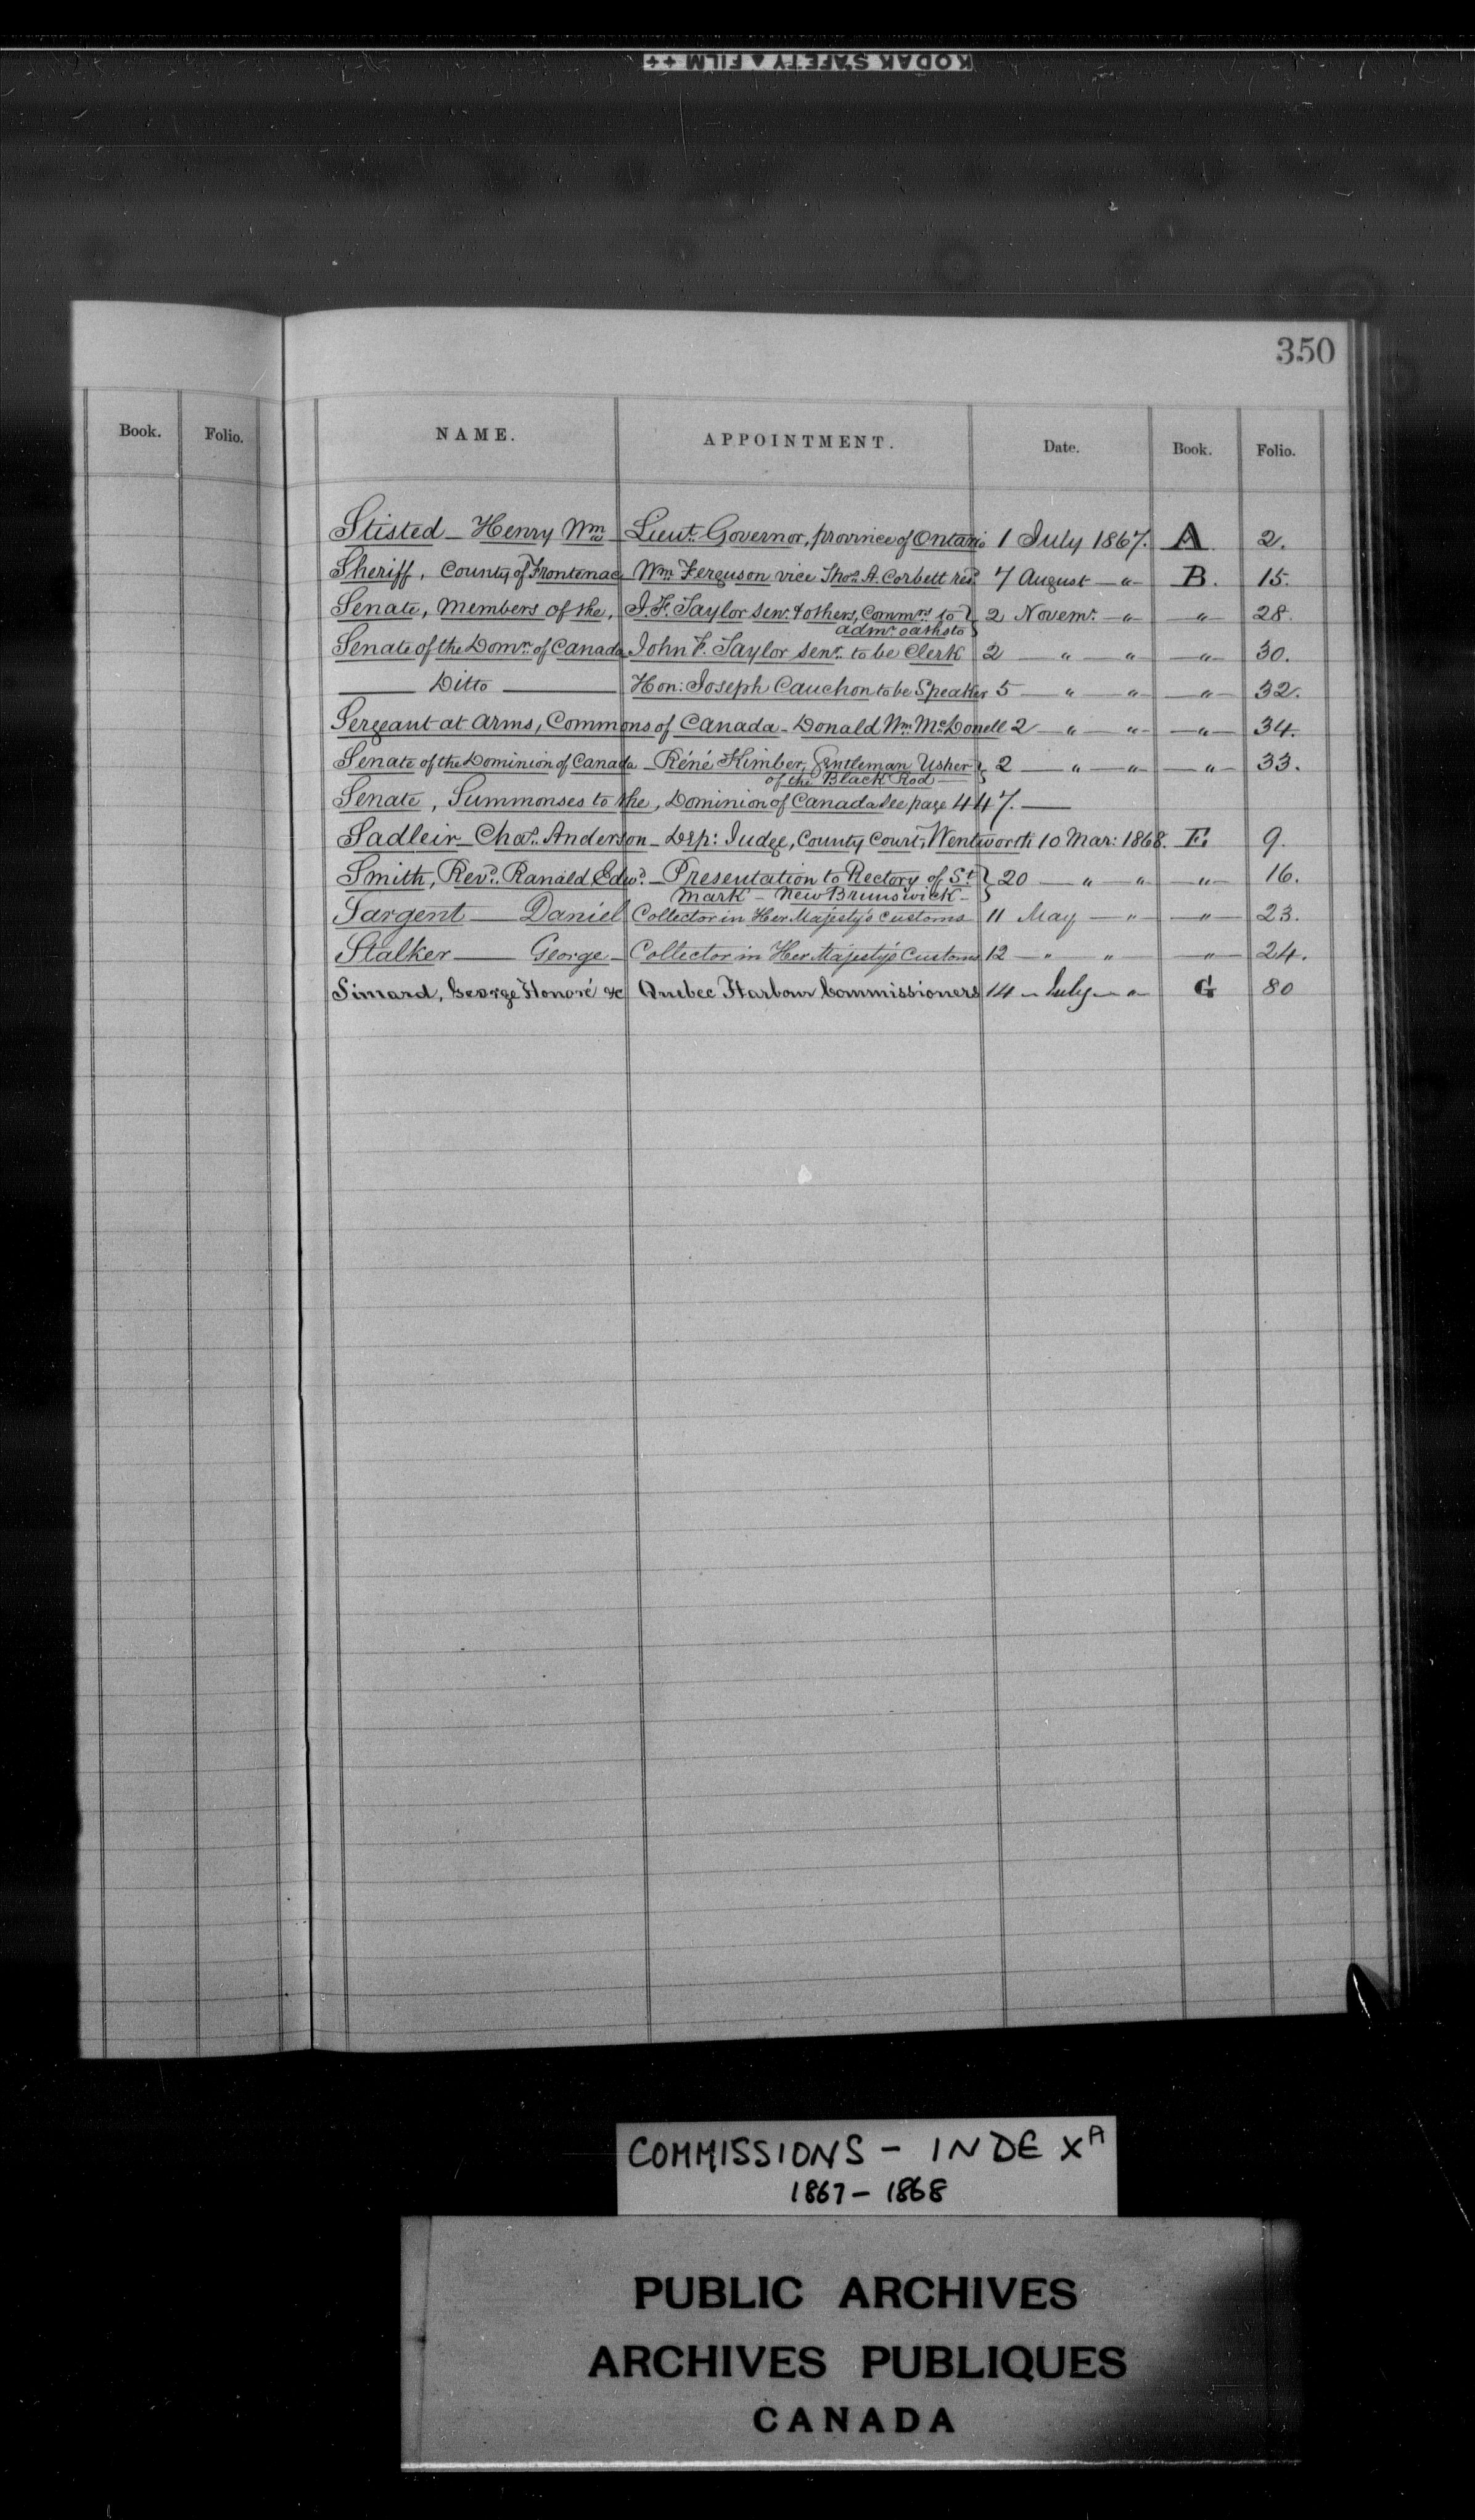 KODAK SAFETY ▲ FILM ++
350
Book. Folio. NAME. APPOINTMENT. Date. Book. Folio.
Stisted - Henry Wm - Lieut. Governor, province of Ontario 1 July 1867. A 2.
Sheriff, County of Frontenac Wm. Ferguson vice Thos. A. Corbett resd. 7 August — " — B. 15.
Senate, Members of the, J. F. Taylor Senr. & others, Commrs. to } 2 Novemr. — " — — " — 28.
admr. oaths to
Senate of the Domn. of Canada John F. Taylor Senr. to be Clerk 2 — " — " — — " — 30.
— Ditto — Hon: Joseph Cauchon to be Speaker 5 — " — " — — " — 32.
Sergeant at Arms, Commons of Canada - Donald Wm. McDonell 2 — " — " — — " — 34.
Senate of the Dominion of Canada - Réné Kimber, Gentleman Usher } 2 — " — " — — " — 33.
of the Black Rod —
Senate, Summonses to the, Dominion of Canada see page 447. —
Sadleir - Chas. Anderson - Dep: Judge, County Court, Wentworth 10 Mar: 1868. E. 9.
Smith, Revd. Ranald Edwd. - Presentation to Rectory of St. } 20 — " — " — — " — 16.
Mark - New Brunswick -
Sargent — Daniel Collector in Her Majesty's Customs 11 May — " — — " — 23.
Stalker — George - Collector in Her Majesty's Customs 12 — " — " — — " — 24.
Simard, George Honoré &c Quebec Harbour Commissioners 14 - July - " - G 80
COMMISSIONS - INDEX A
1867 - 1868
PUBLIC ARCHIVES
ARCHIVES PUBLIQUES
CANADA